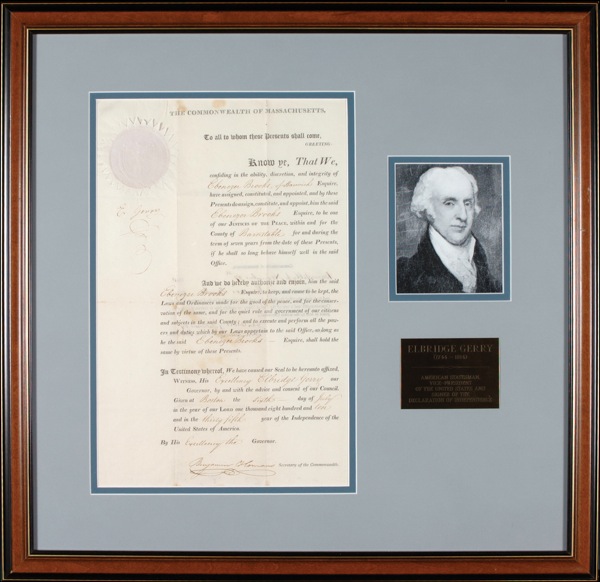 THE COMMONWEALTH OF MASSACHUSETTS,
To all to whom these Presents shall come,
GREETING.
E. Gerry
Know ye, That We,
confiding in the ability, discretion, and integrity of
Ebenezer Brooks, of Harwich Esquire,
have assigned, constituted, and appointed, and by these
Presents do assign, constitute, and appoint, him the said
Ebenezer Brooks Esquire, to be one
of our JUSTICES OF THE PEACE, within and for the
County of Barnstable for and during the
term of seven years from the date of these Presents,
if he shall so long behave himself well in the said
Office.
And we do hereby authorize and enjoin, him the said
Ebenezer Brooks Esquire, to keep, and cause to be kept, the
Laws and Ordinances made for the good of the peace, and for the conser-
vation of the same, and for the quiet rule and government of our citizens
and subjects in the said County; and to execute and perform all the pow-
ers and duties which by our Laws appertain to the said Office, as long as
he the said Ebenezer Brooks Esquire, shall hold the
same by virtue of these Presents.
In Testimony whereof, We have caused our Seal to be hereunto affixed.
WITNESS, His Excellency Elbridge Gerry our
Governor, by and with the advice and consent of our Council.
Given at Boston the Sixth day of July
in the year of our LORD one thousand eight hundred and ten
and in the thirty fifth year of the Independence of the
United States of America.
By His Excellency the Governor.
Benjamin Homans Secretary of the Commonwealth.
ELBRIDGE GERRY
(1744 - 1814)
AMERICAN STATESMAN,
VICE-PRESIDENT
OF THE UNITED STATES AND
SIGNER OF THE
DECLARATION OF INDEPENDENCE